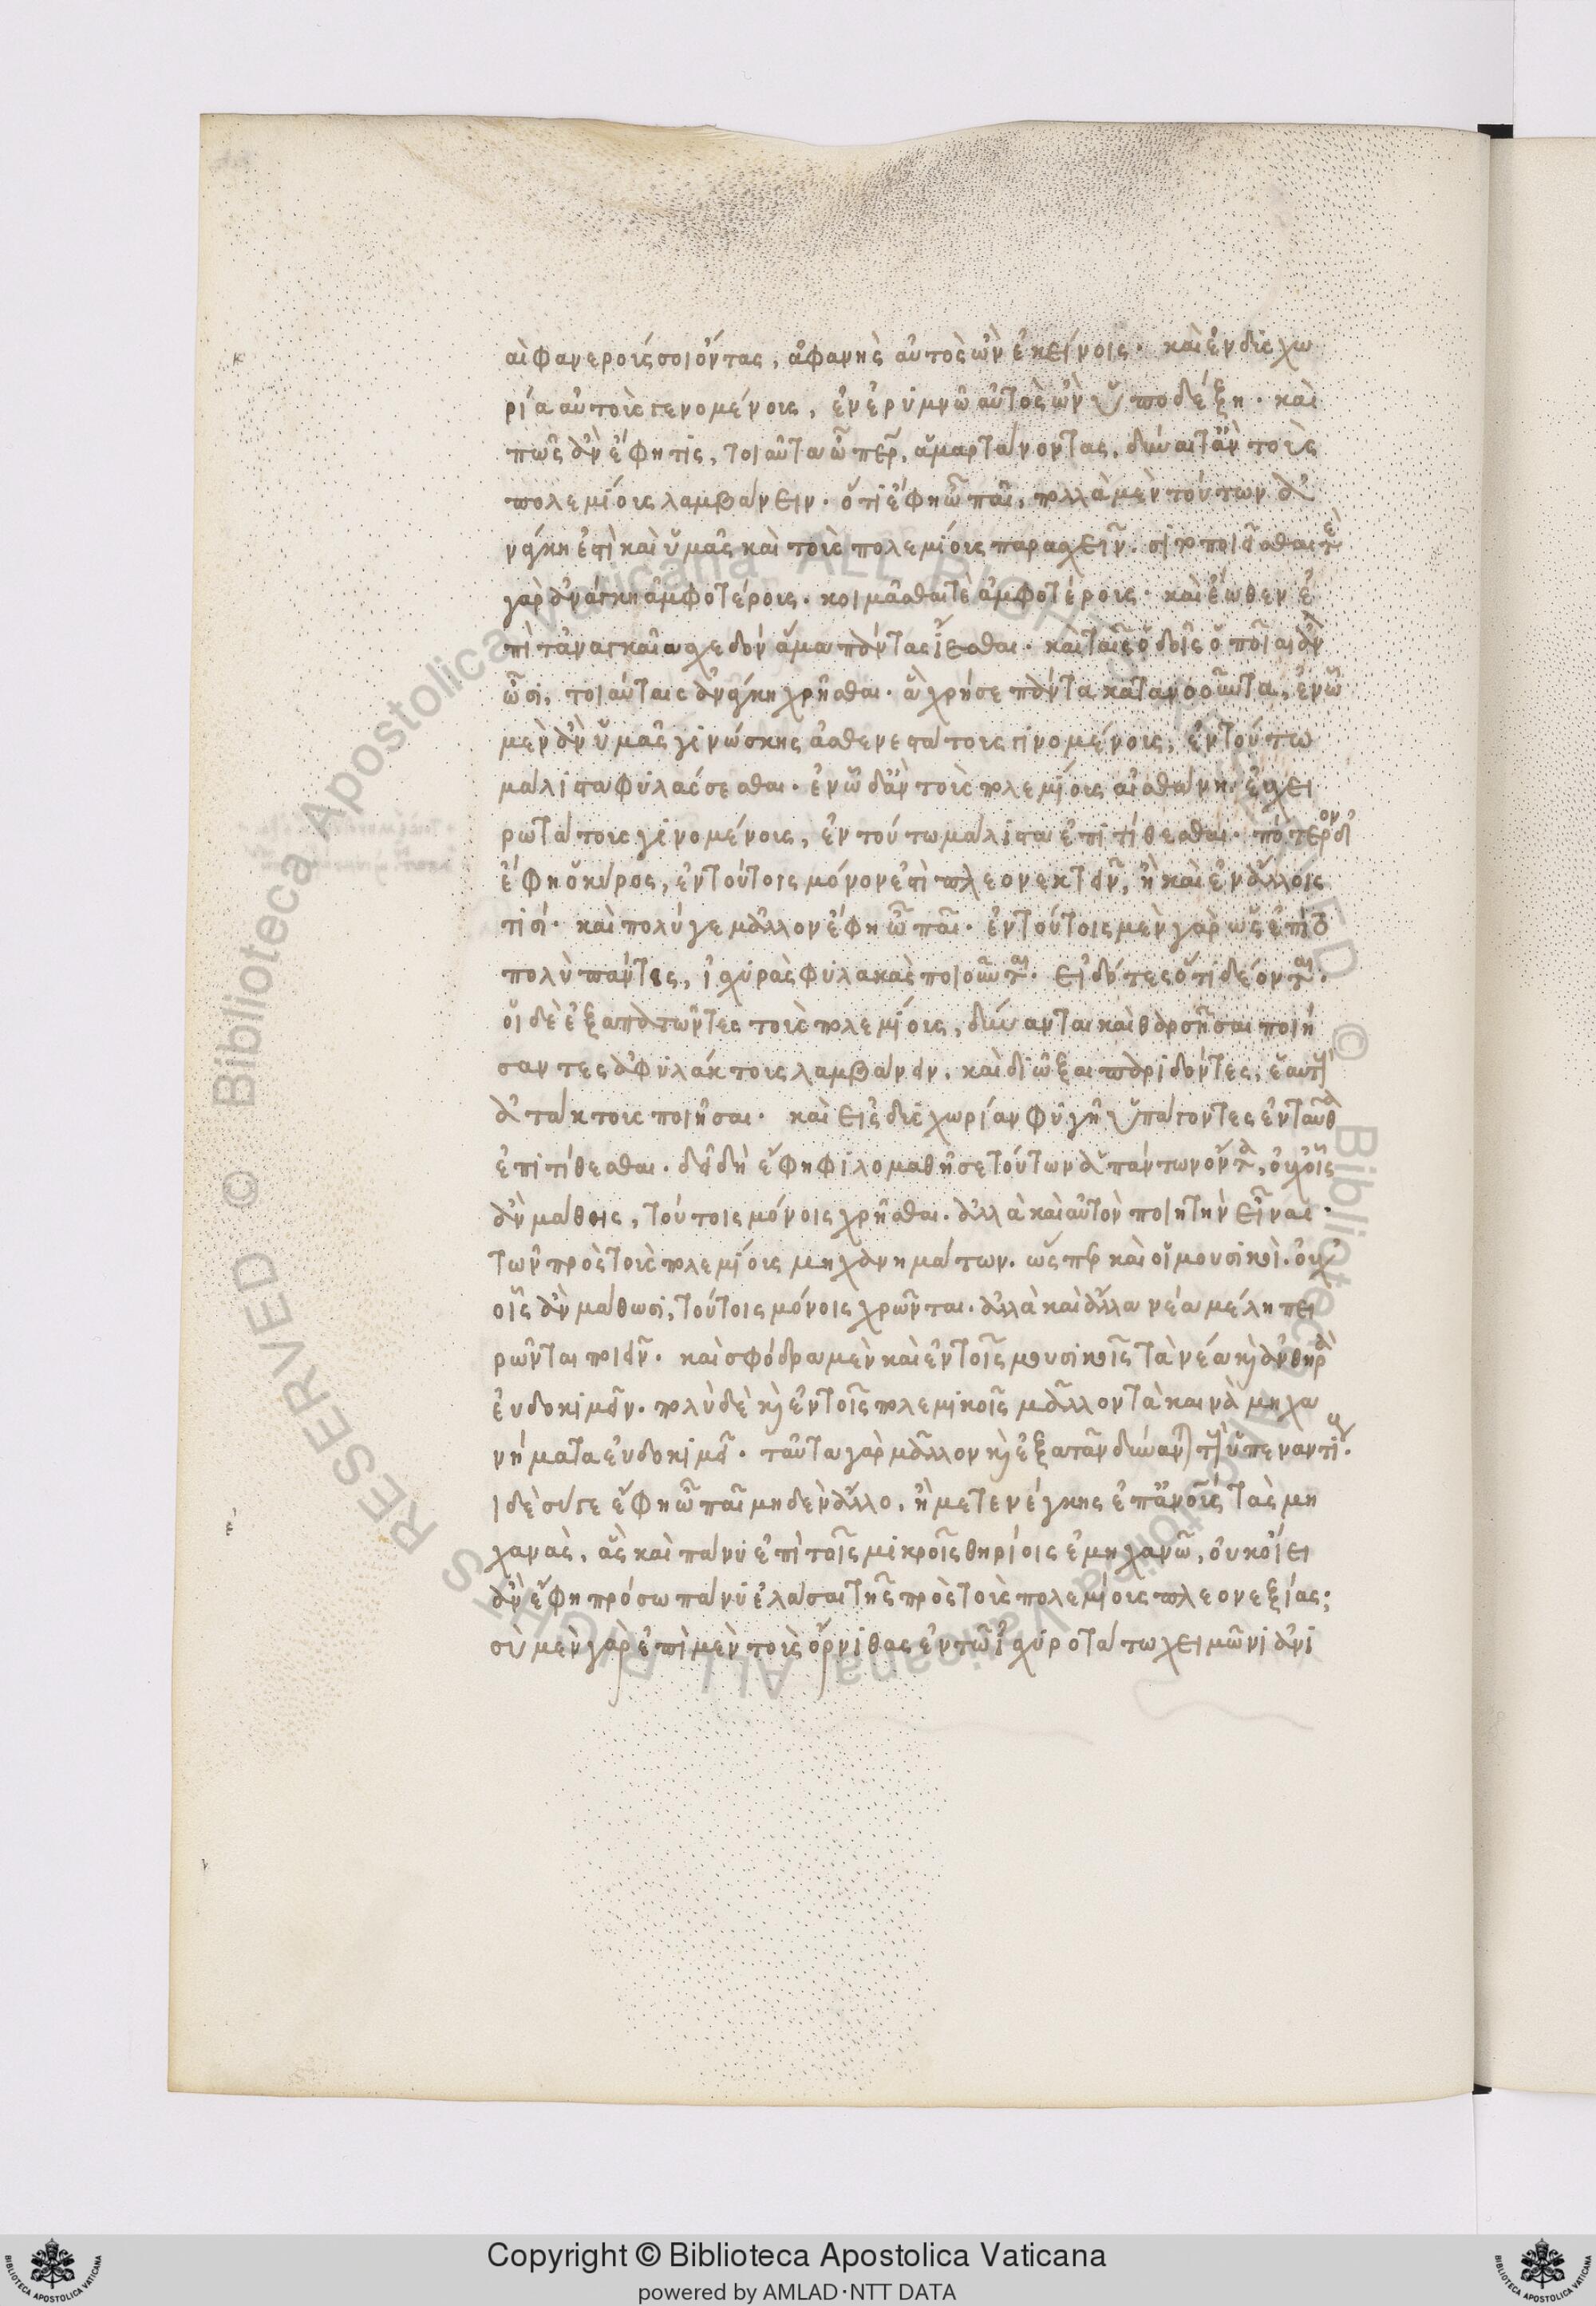 αι φανεροὺς σοι ὄντας, ἀφανὴς αὐτὸς ὢν ἐκείνοις· καὶ ἐν δυσχω
ρία αὐτοὺς γενομένους, ἐν ἐρυμνῶ αὐτὸς ὢν ὑποδέξη· καὶ
πῶς ἂν ἔφη τίς, τοιαῦτα ὦ πάτερ, ἁμαρτάνοντας, δύναιτ' ἂν τοὺς
πολεμίους λαμβάνειν· ὅτι ἔφη ὦ παῖ, πολλὰ μὲν τούτων ἀ
νάγκη ἐστὶ καὶ ὑμᾶς καὶ τοὺς πολεμίους παρασχεῖν· σιτοποιεῖσθαι τὲ
γὰρ ἀνάγκη ἀμφοτέρους· κοιμᾶσθαι τὲ ἀμφοτέρους· καὶ ἕωθεν ἐ
πὶ τἀναγκαῖα σχεδὸν ἅμα πάντας ἵεσθαι· καὶ ταῖς ὁδοῖς ὁποῖαι ἂν
ὦσι, τοιαύταις ἀνάγκη χρῆσθαι· ἃ χρή σε πάντα κατανοοῦντα, ἐν ὧ
μὲν ἂν ὑμᾶς γινώσκης ἀσθενεστάτους γινομένους, ἐν τούτω
μάλιστα φυλάσσεσθαι· ἐν ὧ δ' ἂν τοὺς πολεμίους αἰσθάνη εὐχει
ρωτάτους γινομένους, ἐν τούτω μάλιστα ἐπιτίθεσθαι· πότερον δ'
ἔφη ὁ κύρος, ἐν τούτοις μόνον ἐστὶ πλεονεκτεῖν, ἢ καὶ ἐν ἄλλοις
τισί· καὶ πολύ γε μᾶλλον ἔφη ὦ παῖ· ἐν τούτοις μὲν γὰρ ὡς ἐπὶ τὸ
πολὺ πάντες, ἰσχυρὰς φυλακὰς ποιοῦνται· εἰδότες ὅτι δέονται·
οἱ δὲ ἐξαπατῶντες τοὺς πολεμίους, δύνανται καὶ θαρσῆσαι ποιή
σαντες ἀφυλάκτους λαμβάνειν, καὶ διῶξαι παριδόντες, ἑαυτοὺς
ἀτάκτους ποιῆσαι· καὶ εἰς δυσχωρίαν φυγῆ ὑπάγοντες ἐνταῦθα
ἐπιτίθεσθαι· δεῖ δὴ ἔφη φιλομαθῆ σε τούτων ἁπάντων ὄντα, οὐχ οἷς
ἂν μάθοις, τούτοις μόνοις χρῆσθαι· ἀλλὰ καὶ αὐτὸν ποιητὴν εἶναι·
τῶν πρὸς τοὺς πολεμίους μηχανημάτων· ὥσπερ καὶ οἱ μουσικοὶ· οὐχ
οἷς ἂν μάθωσι, τούτοις μόνοις χρῶνται· ἀλλὰ καὶ ἄλλα νέα μέλη πει
ρῶνται ποιεῖν· καὶ σφόδρα μὲν καὶ ἐν τοῖς μουσικοῖς τὰ νέα καὶ ἀνθηρὰ
εὐδοκιμεῖ· πολὺ δὲ καὶ ἐν τοῖς πολεμικοῖς μᾶλλον τὰ καινὰ μηχα
νήματα εὐδοκιμεῖ· ταῦτα γὰρ μᾶλλον καὶ ἐξαπατᾶν δύνανται τοὺς ὑπεναντίους·
ἰδὲ σύ γε ἔφη ὦ παῖ μηδὲν ἄλλο, ἢ μετενέγκης ἐπ' ἀνοῖς τὰς μη
χανὰς, ἃς καὶ πάνυ ἐπὶ τοῖς μικροῖς θηρίοις ἐμηχανῶ, οὐκ οἴει
ἂν ἔφη πρόσω πάνυ ἐλάσαι τῆς πρὸς τοὺς πολεμίους πλεονεξίας;
σὺ μὲν γὰρ ἐπὶ μὲν τοὺς ὄρνιθας ἐν τῶ ἰσχυροτάτω χειμῶνι ἀνι